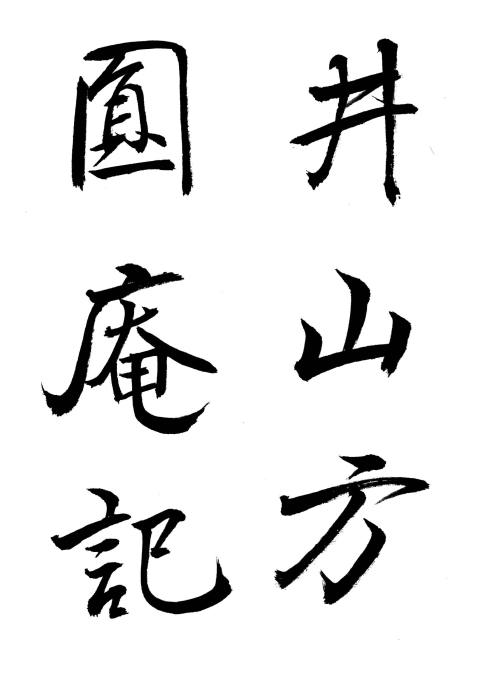 井山方
圓庵記